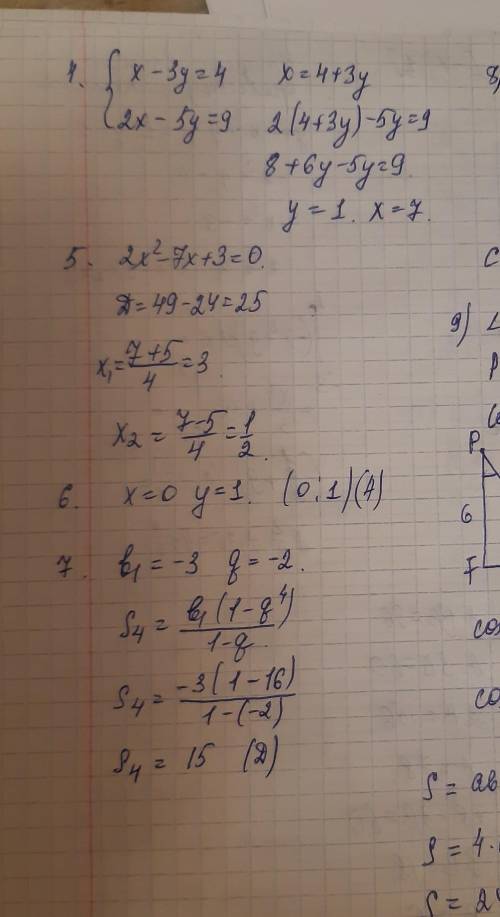 4. { x - 3y = 4    x = 4 + 3y
2x - 5y = 9    2(4+3y) - 5y = 9
8 + 6y - 5y = 9
y = 1. x = 7.
5. 2x² - 7x + 3 = 0.
D = 49 - 24 = 25
x₁ = (7+5)/4 = 3
x₂ = (7-5)/4 = 1/2.
6. x = 0 y = 1. (0; 1) (A)
7. b₁ = -3 q = -2.
S₄ = b₁(1 - q⁴)/(1 - q)
S₄ = -3(1 - 16)/(1 - (-2))
S₄ = 15 (D)
8)
C
9) L
P
P
6
F
cos
co
S = ab
S = 4 ·
S = 24